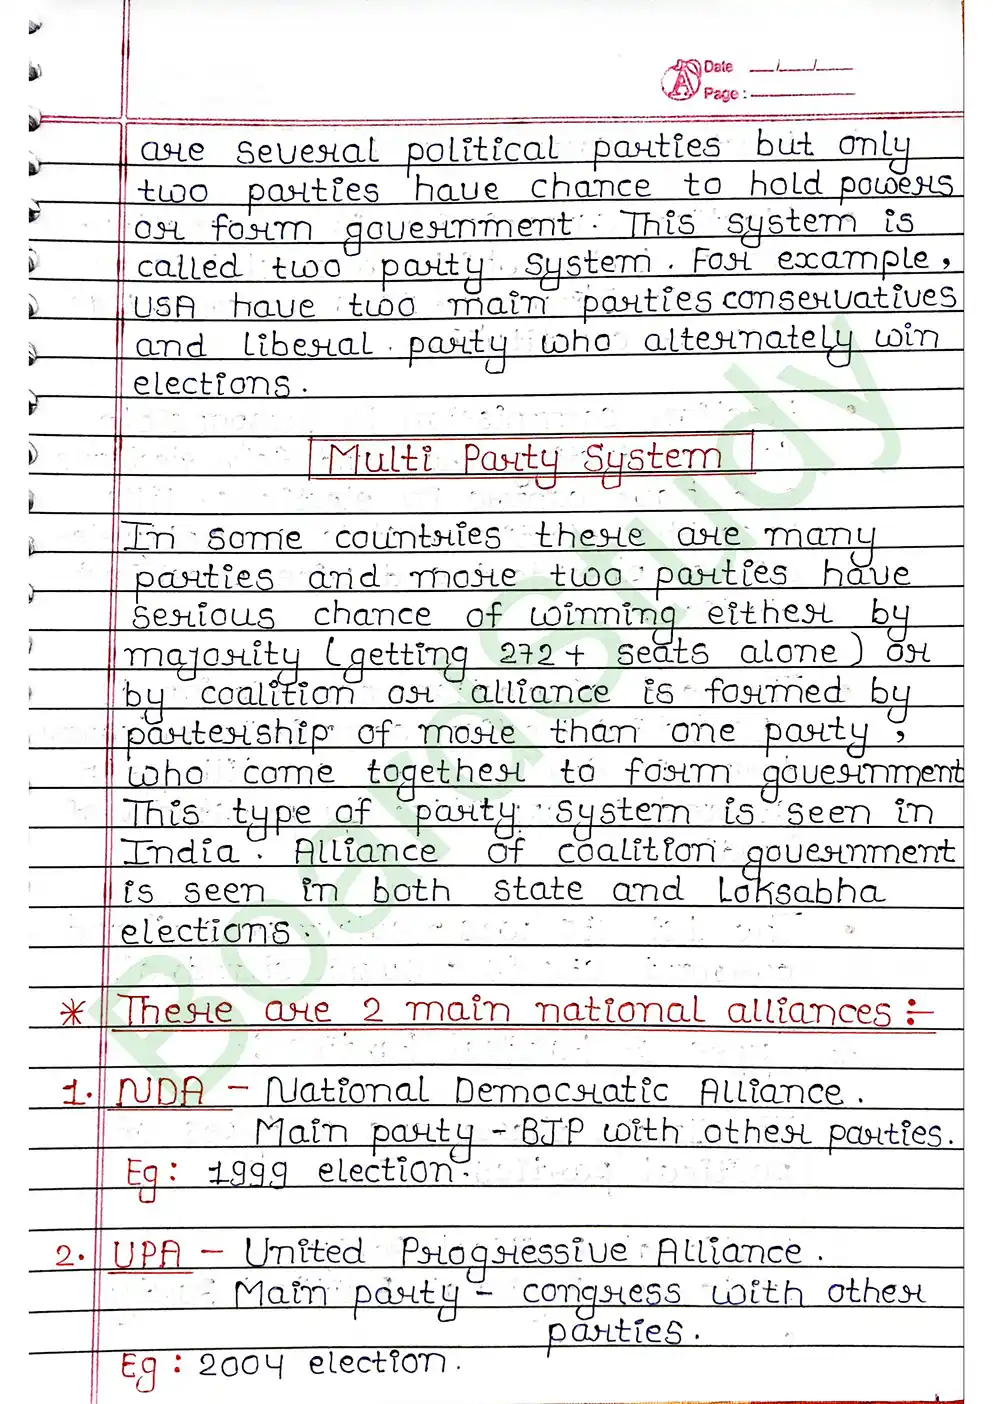 Date __/__/__
Page: ______
are several political parties but only
two parties have chance to hold powers
or form government. This system is
called two party system. For example,
USA have two main parties conservatives
and liberal party who alternately win
elections.
Multi Party System
In some countries there are many
parties and more two parties have
serious chance of winning either by
majority (getting 272+ seats alone) or
by coalition or alliance is formed by
partership of more than one party,
who come together to form government
This type of party system is seen in
India. Alliance of coalition government
is seen in both state and Loksabha
elections.
* There are 2 main national alliances :-
1. NDA - National Democratic Alliance.
Main party - BJP with other parties.
Eg: 1999 election.
2. UPA - United Progressive Alliance.
Main party - congress with other
parties.
Eg: 2004 election.
BoardStudy